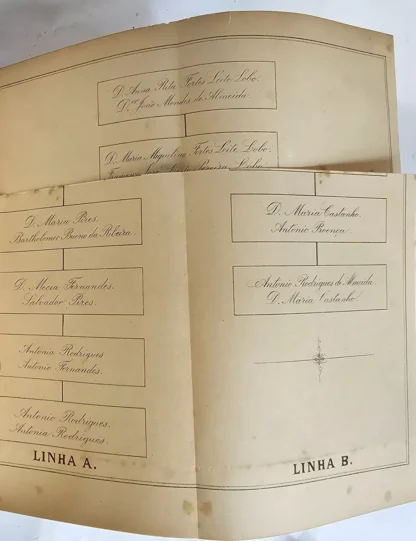 D. Anna Rita Fortes Leite Lobo.
D.or João Mendes de Almeida.
D. Maria Miguelina Fortes Leite Lobo.
Lobo.
D. Maria Pires.
Bartholomeu Bueno da Ribeira.
D. Mecia Fernandes.
Salvador Pires.
Antonia Rodrigues
Antonio Fernandes.
Antonio Rodrigues.
Antonia Rodrigues.
LINHA A.
D. Maria Castanho.
Antonio Proença.
Antonio Rodrigues de Almeida.
D. Maria Castanho.
LINHA B.